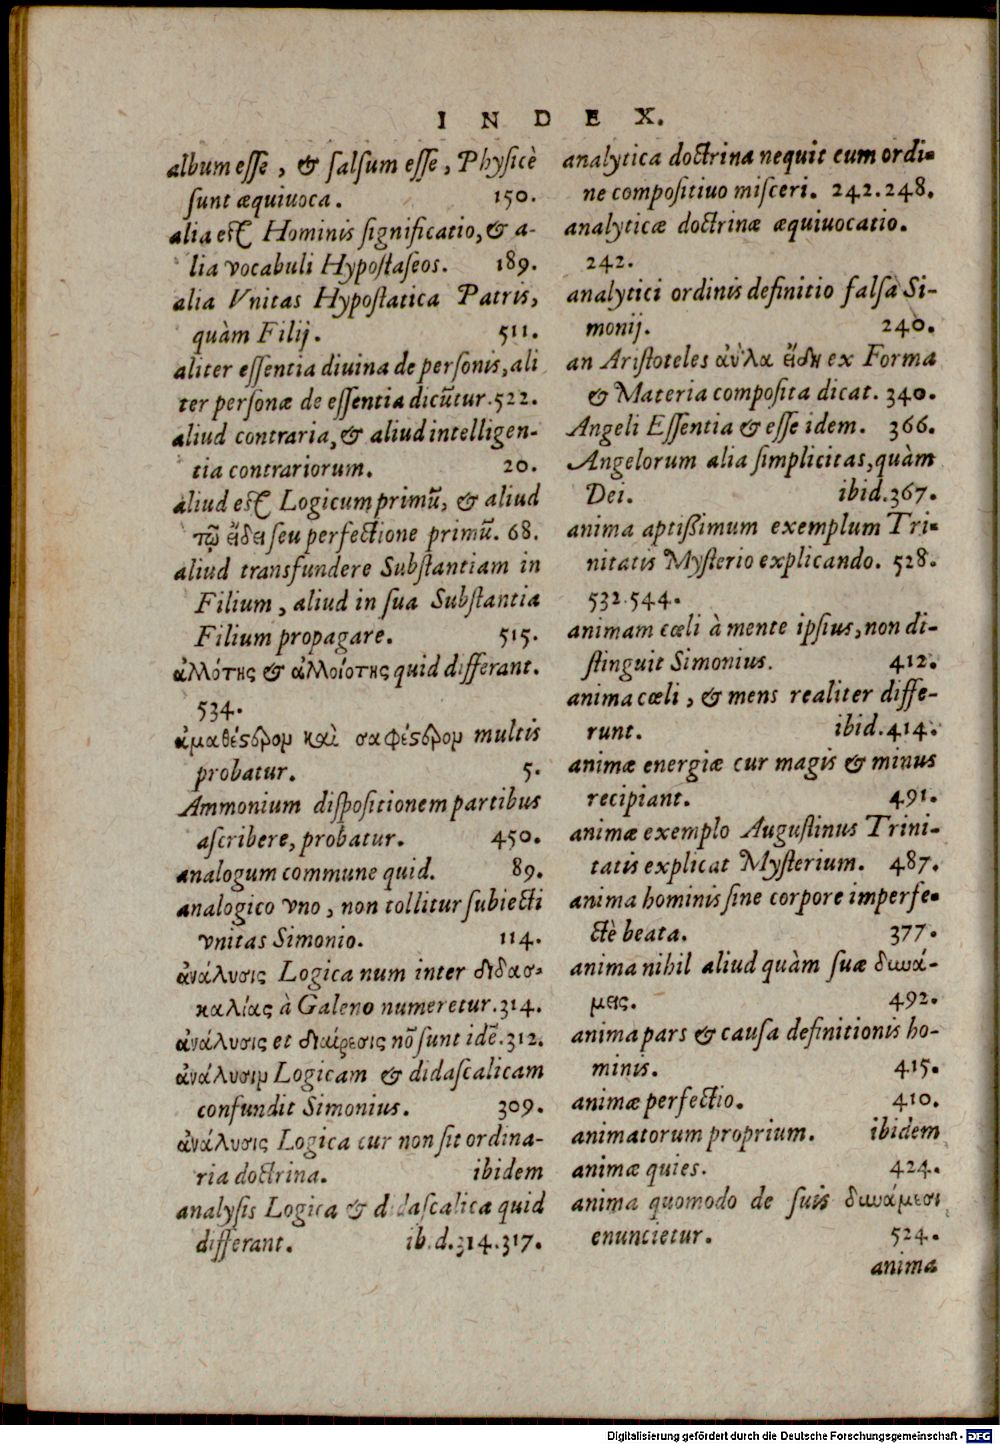 INDEX.
album esse, & salsum esse, Physicè
sunt æquiuoca. 150.
alia est Hominis significatio, & a-
lia vocabuli Hypostaseos. 189.
alia Vnitas Hypostatica Patris,
quàm Filij. 511.
aliter essentia diuina de personis, ali
ter personæ de essentia dicũtur. 522.
aliud contraria, & aliud intelligen-
tia contrariorum. 20.
aliud est Logicum primũ, & aliud
τῷ εἴδει seu perfectione primũ. 68.
aliud transfundere Substantiam in
Filium, aliud in sua Substantia
Filium propagare. 515.
ἀλλότης & ἀλλοιότης quid differant.
534.
ἀμαθέστερον καὶ σαφέστερον multis
probatur. 5.
Ammonium dispositionem partibus
ascribere, probatur. 450.
analogum commune quid. 89.
analogico vno, non tollitur subiecti
vnitas Simonio. 114.
ἀνάλυσις Logica num inter διδασ-
καλίας à Galeno numeretur. 314.
ἀνάλυσις et διαίρεσις nõ sunt idẽ. 312.
ἀνάλυσιν Logicam & didascalicam
confundit Simonius. 309.
ἀνάλυσις Logica cur non sit ordina-
ria doctrina. ibidem
analysis Logica & didascalica quid
differant. ibid. 314. 317.
analytica doctrina nequit cum ordi-
ne compositiuo misceri. 242. 248.
analyticæ doctrinæ æquiuocatio.
242.
analytici ordinis definitio falsa Si-
monij. 240.
an Aristoteles ἀύλα εἴδη ex Forma
& Materia composita dicat. 340.
Angeli Essentia & esse idem. 366.
Angelorum alia simplicitas, quàm
Dei. ibid. 367.
anima aptißimum exemplum Tri-
nitatis Mysterio explicando. 528.
532. 544.
animam cœli à mente ipsius, non di-
stinguit Simonius. 412.
anima cœli, & mens realiter diffe-
runt. ibid. 414.
animæ energiæ cur magis & minus
recipiant. 491.
animæ exemplo Augustinus Trini-
tatis explicat Mysterium. 487.
anima hominis sine corpore imperfe-
ctè beata. 377.
anima nihil aliud quàm suæ δυνά-
μεις. 492.
anima pars & causa definitionis ho-
minis. 415.
animæ perfectio. 410.
animatorum proprium. ibidem
animæ quies. 424.
anima quomodo de suis δυνάμεσι
enuncietur. 524.
anima
Digitalisierung gefördert durch die Deutsche Forschungsgemeinschaft - DFG